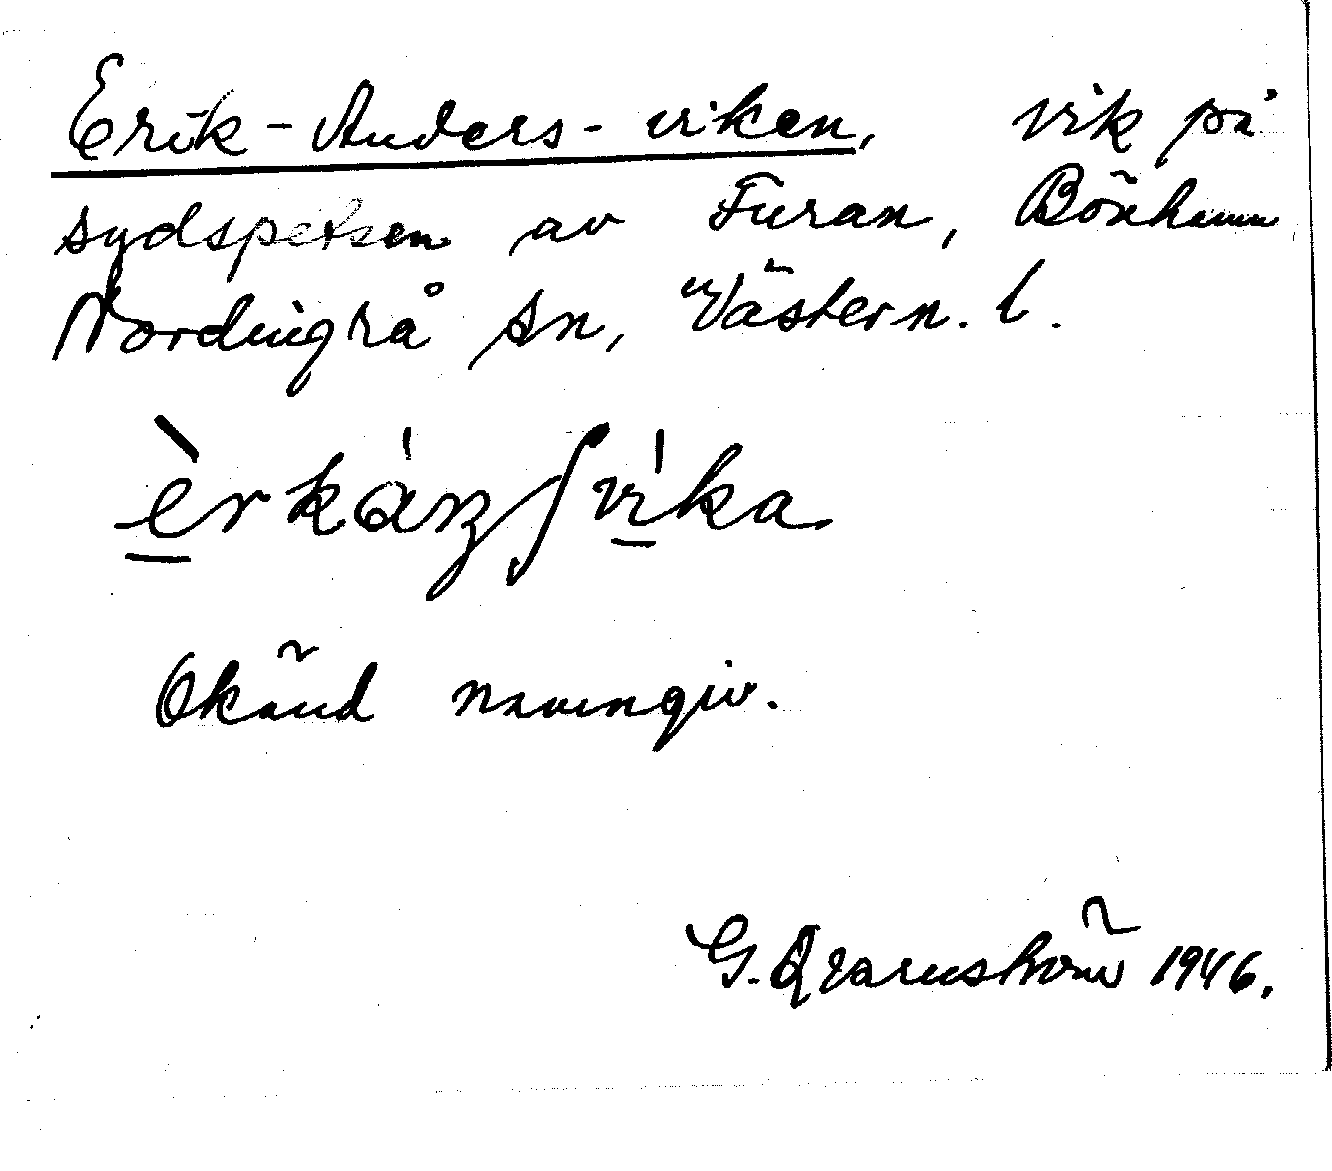 Erik-Anders-viken, vik på
sydspetsen av Furan, Bönhamn
Nordingrå sn, Västern. l.
Okänd namngiv.
G. Qvarnström 1946.